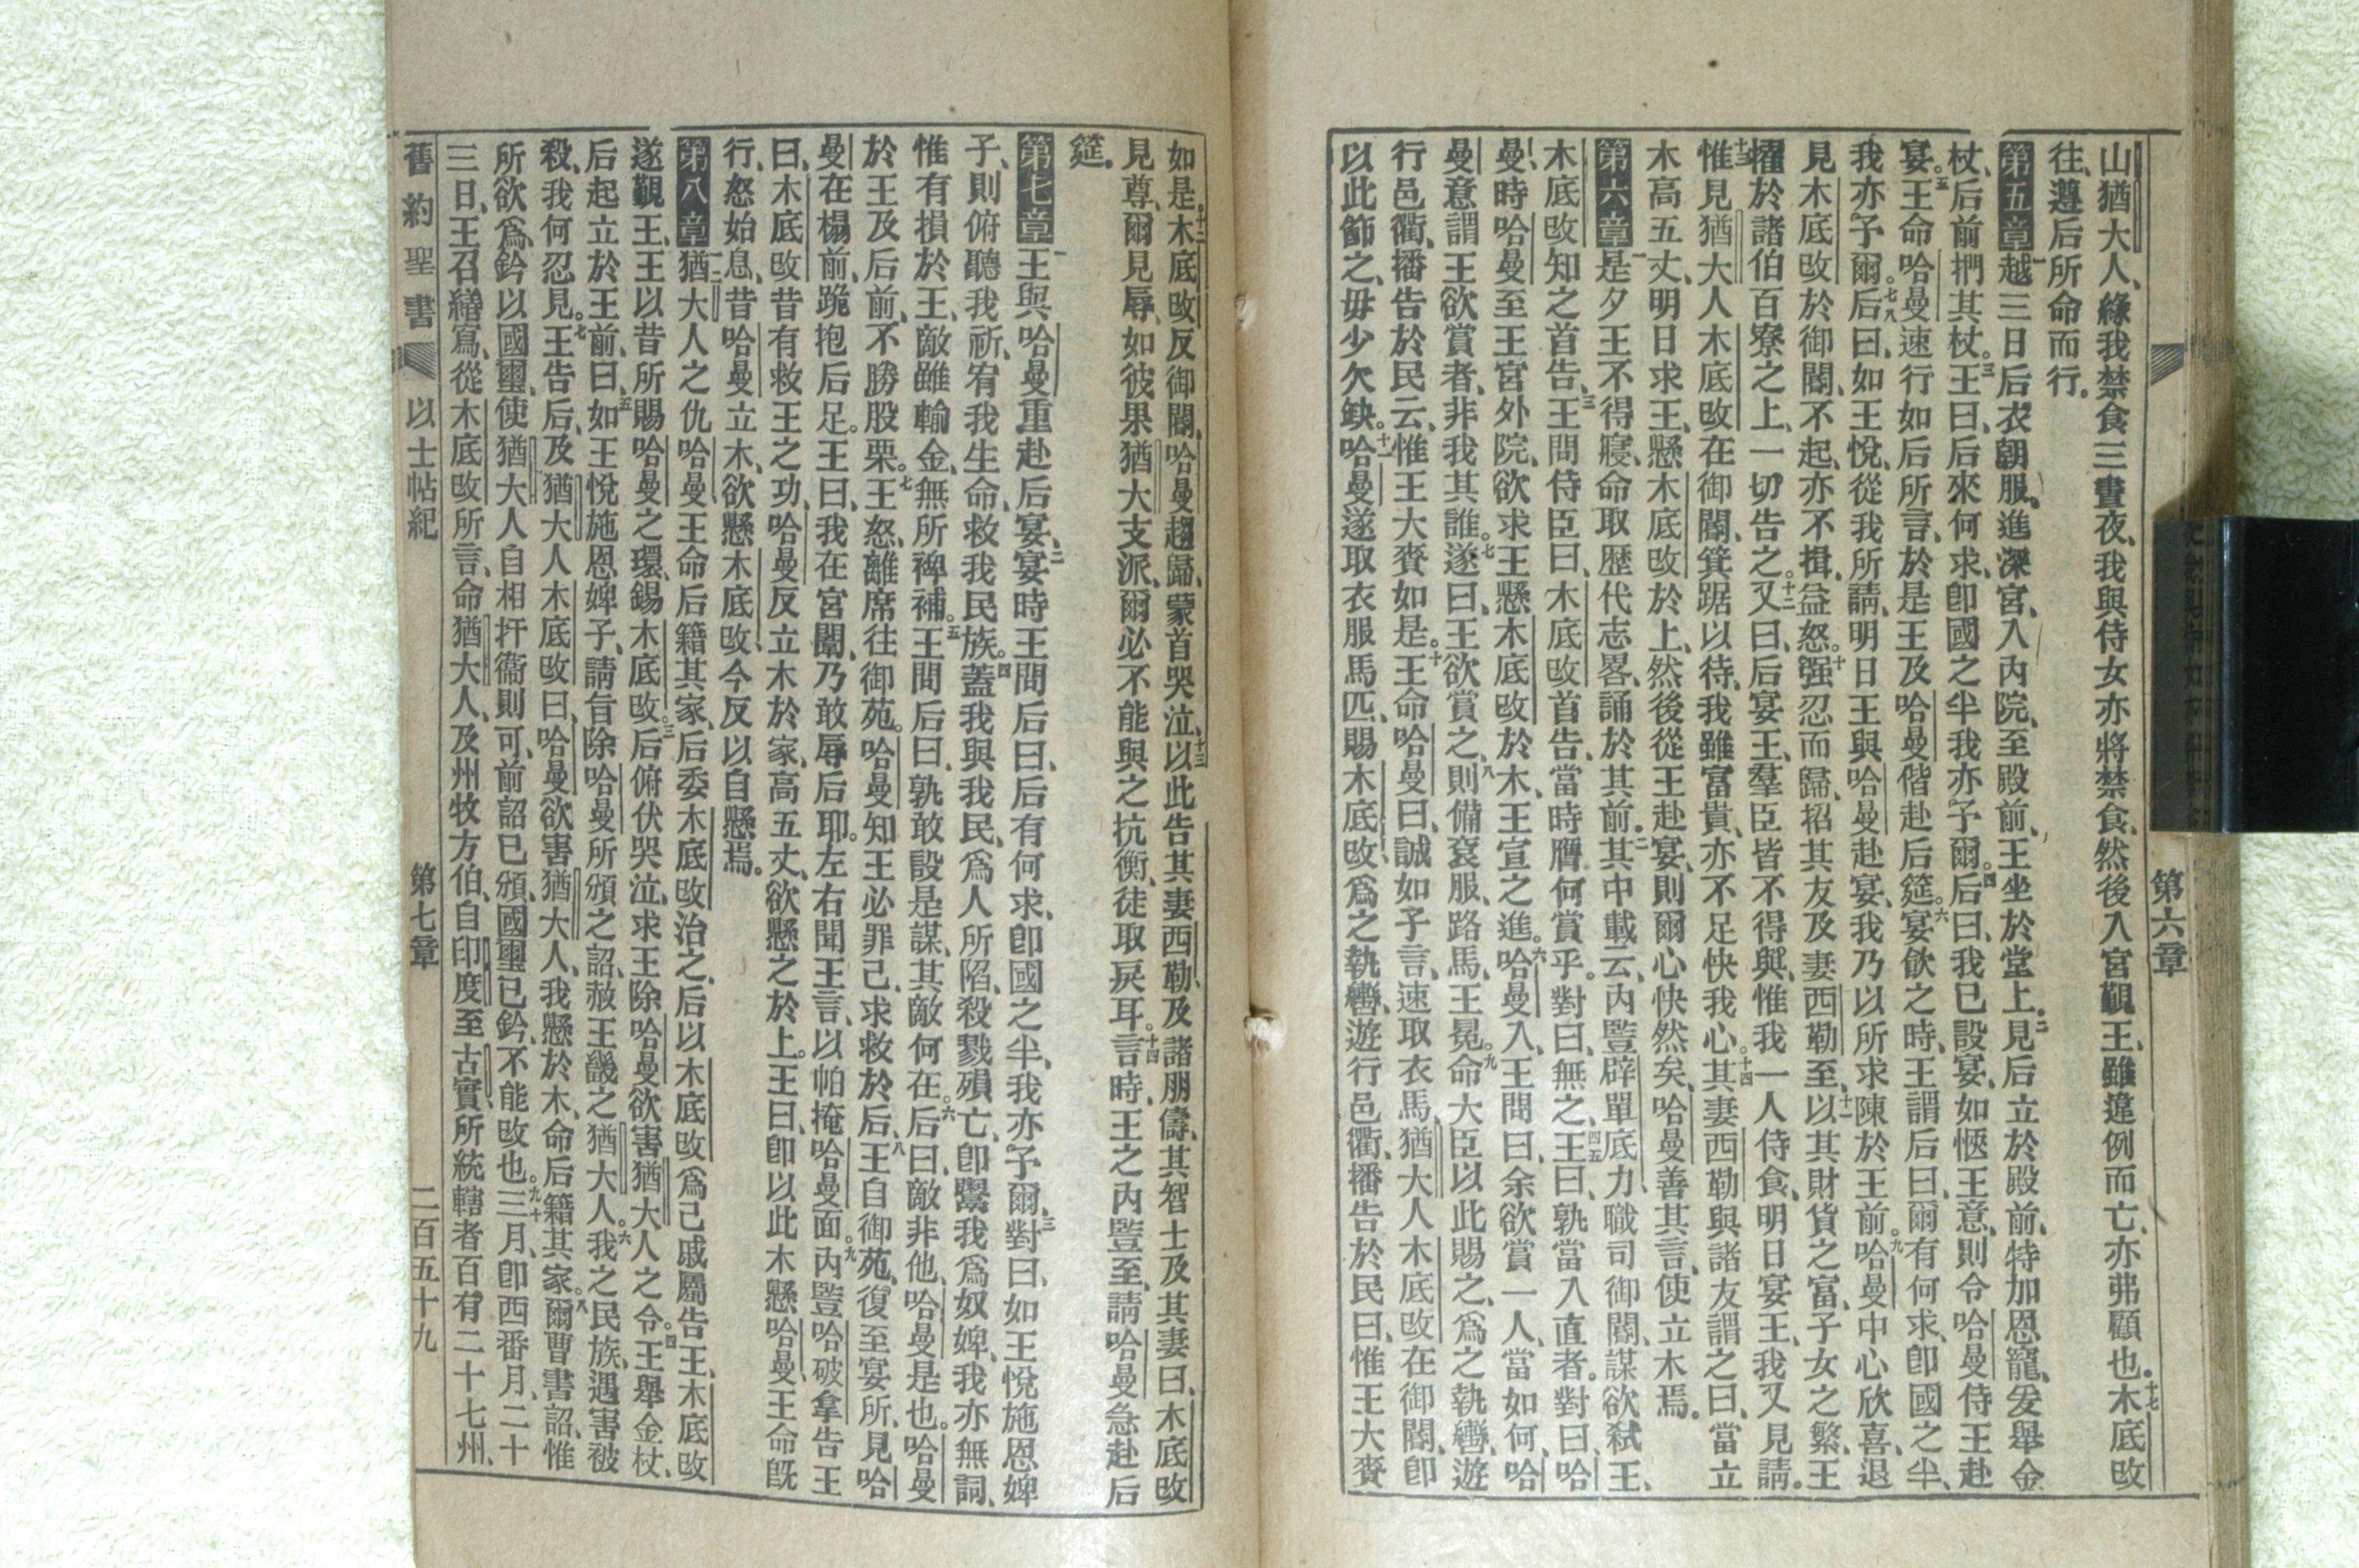 第六章
山猶大人、緣我禁食三晝夜、我與侍女亦將禁食、然後入宮覲王、雖違例而亡、亦弗顧也。十七木底改
往、遵后所命而行。
第五章一越三日后衣朝服、進深宮、入內院、至殿前、王坐於堂上。二見后立於殿前、特加恩寵、爰舉金
杖、后前捫其杖。三王曰、后來何求、卽國之半、我亦予爾。四后曰、我已設宴、如愜王意、則令哈曼侍王赴
宴。五王命哈曼速行如后所言、於是王及哈曼偕赴后筵。六宴飮之時、王謂后曰、爾有何求、卽國之半、
我亦予爾。七八后曰、如王悅、從我所請、明日王與哈曼赴宴、我乃以所求陳於王前。九哈曼中心欣喜、退
見木底改於御闕、不起、亦不揖、益怒。十强忍而歸、招其友及妻西勒至、十一以其財貨之富、子女之繁、王
擢於諸伯百寮之上、一切告之。十二又曰、后宴王、羣臣皆不得與、惟我一人侍食、明日宴王、我又見請。
十三惟見猶大人木底改在御闕、箕踞以待、我雖富貴、亦不足快我心。十四其妻西勒與諸友謂之曰、當立
木高五丈、明日求王、懸木底改於上、然後從王赴宴、則爾心快然矣、哈曼善其言、使立木焉。
第六章一是夕王不得寢、命取歷代志畧、誦於其前。二其中載云、內豎辟單底力職司御闕、謀欲弒王、
木底改知之首告、三王問侍臣曰、木底改首告、當時膺何賞乎。對曰、無之、四五王曰、孰當入直者。對曰、哈
曼、時哈曼至王宮外院、欲求王懸木底改於木、王宣之進。六哈曼入、王問曰、余欲賞一人、當如何、哈
曼意謂王欲賞者、非我其誰。七遂曰、王欲賞之、八則備袞服、路馬、王冕。九命大臣以此賜之、爲之執轡、遊
行邑衢、播告於民云、惟王大賚如是。十王命哈曼曰、誠如予言、速取衣馬、猶大人木底改在御闕、卽
以此節之、毋少欠缺。十一哈曼遂取衣服馬匹、賜木底改、爲之執轡、遊行邑衢、播告於民曰、惟王大賚
如是。十二木底改反御闕、哈曼趨歸、蒙首哭泣、十三以此告其妻西勒、及諸朋儔、其智士及其妻曰、木底改
見尊、爾見辱、如彼果猶大支派、爾必不能與之抗衡、徒取戾耳。十四言時、王之內豎至、請哈曼急赴后
筵。
第七章一王與哈曼重赴后宴、二宴時王問后曰、后有何求、卽國之半、我亦予爾、三對曰、如王悅施恩婢
子、則俯聽我祈、宥我生命、救我民族。四蓋我與我民、爲人所陷、殺戮殞亡、卽鬻我爲奴婢、我亦無詞、
惟有損於王、敵雖輸金、無所裨補。五王問后曰、孰敢設是謀、其敵何在。六后曰、敵非他、哈曼是也。哈曼
於王及后前、不勝股栗。七王怒、離席往御苑。哈曼知王必罪己、求救於后、八王自御苑、復至宴所、見哈
曼在榻前、跪抱后足。王曰、我在宮闈、乃敢辱后耶。左右聞王言、以帕掩哈曼面。九內豎哈破拿告王
曰、木底改昔有救王之功、哈曼反立木於家、高五丈、欲懸之於上。王曰、卽以此木懸哈曼、王命旣
行、怒始息、昔哈曼立木、欲懸木底改、今反以自懸焉。
第八章一二猶大人之仇哈曼、王命后籍其家、后委木底改治之、后以木底改爲己戚屬告王、木底改
遂覲王、王以昔所賜哈曼之環、錫木底改。三后俯伏哭泣、求王除哈曼欲害猶大人之令。四王舉金杖、
后起立於王前、曰、五如王悅施恩婢子、請旨除哈曼所頒之詔、赦王畿之猶大人。六我之民族、遇害被
殺、我何忍見。七王告后、及猶大人木底改曰、哈曼欲害猶大人、我懸於木、命后籍其家。八爾曹書詔、惟
所欲爲、鈐以國璽、使猶大人自相扞衞則可、前詔已頒、國璽已鈐、不能改也。九十三月、卽西番月、二十
三日、王召繕寫、從木底改所言、命猶大人、及州牧方伯、自印度至古實、所統轄者百有二十七州、
舊約聖書 以士帖紀 第七章 二百五十九